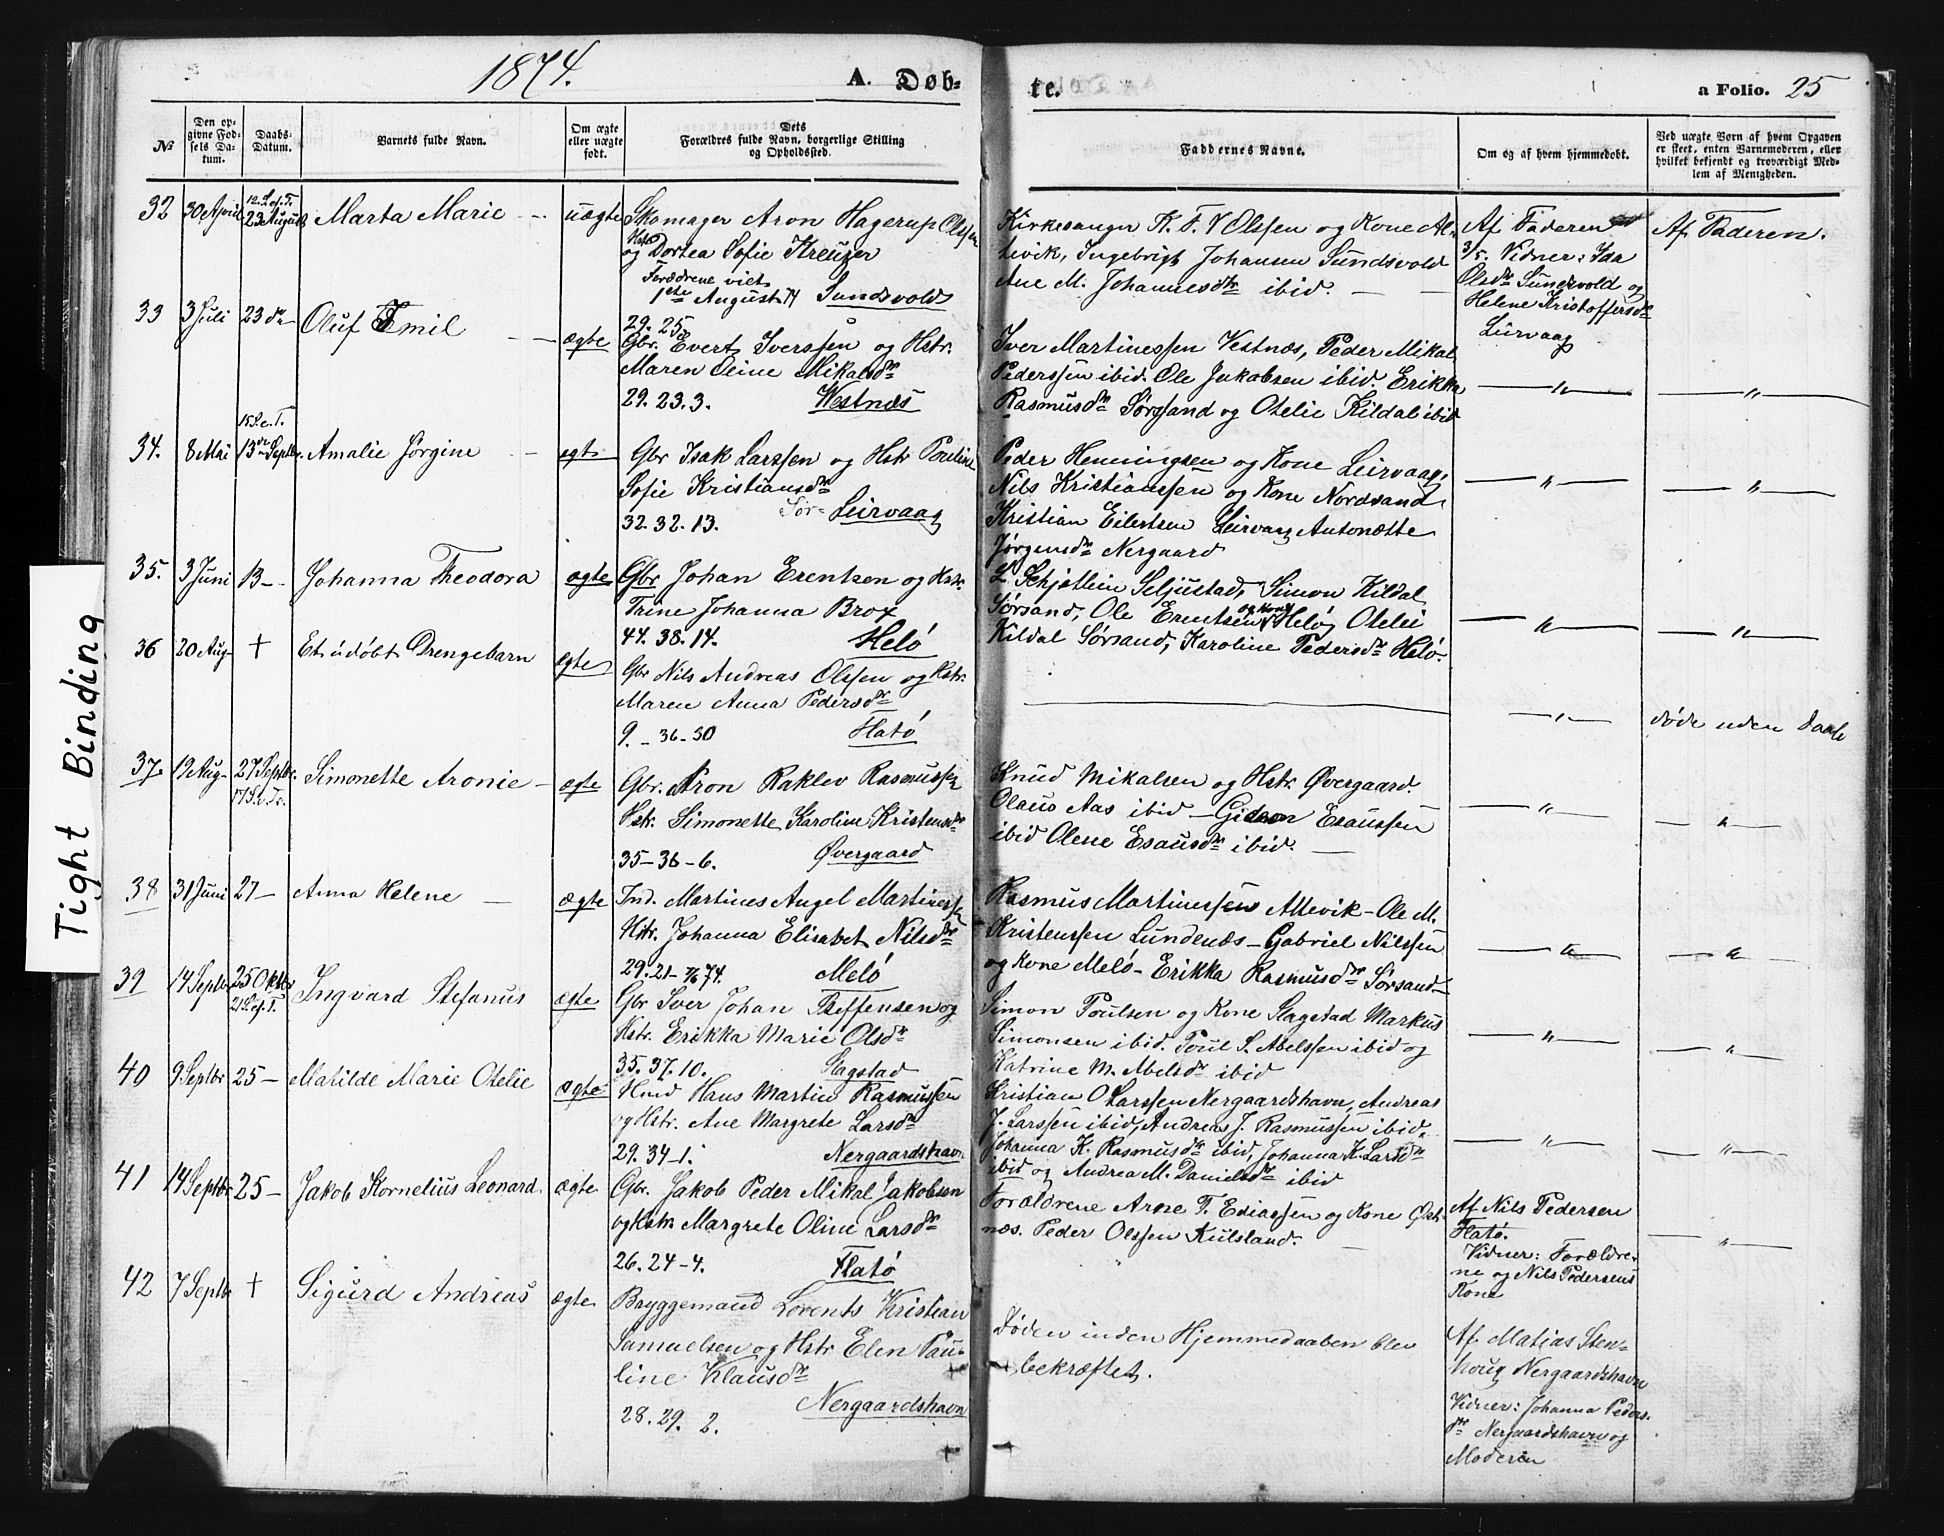 1874.
A. Døb-
te.
a Folio. 25
№
Den op-
givne Fød-
sels Da-
tum.
Daabs-
Datum.
Barnets fulde Navn.
Om ægte
eller uægte
født.
Dets
Forældres fulde Navn, borgerlige Stilling
og Opholdssted.
Faddernes Navne.
Om og af hvem hjemmedøbt.
Ved uægte Børn af hvem Opgaven
er skeet, enten Barnemoderen, eller
hvilket bekjendt og troværdigt Med-
lem af Menigheden.
32 30 April 12.S.ef.T. 23 August Marta Marie uægte
Skomager Aron Hagerup Olssen
og Hstr Dortea Sofie Kreuzer
Forældrene viet
1ste August 74 Sundsvold
29. 25.
Kirkesanger K. F. V Olssen og Kone Al-
tevik, Ingebrigt Johansen Sundsvold
Ane M. Johannesdtr ibid.
Af Faderen
3/5. Vidner: Ida
Olsdtr Sundsvold og
Helene Kristoffersdtr
Leirvaag
Af Faderen.
33 3 Juli 23 dr Oluf Emil ægte
Gbr. Evert Iverssen og Hstr.
Maren Oline Mikalsdtr
29. 23. 3. Westnæs
Iver Martinessen Vestnæs, Peder Mikal
Pederssen ibid. Ole Jakobsen ibid. Erikka
Rasmusdtr Sørsand og Otelie Kildal ibid
— " —
— " —
34. 8 Mai 15 S. e. T. 13de Septbr. Amalie Jørgine ægte
Gbr Isak Larssen og Hstr Pauline
Sofie Kristiansdtr
32. 32. 13. Sør- Leirvaag
Peder Henningsen og Kone Leirvaag,
Nils Kristianssen og Kone Nordsand
Kristian Eilertsen Leirvaag Antonætte
Jørgensdtr Nergaard
— " —
— " —
35. 3 Juni 13 — Johanna Theodora ægte
Gbr Johan Erentsen og Hstr.
Trine Johanna Brox
44. 38. 14. Helø
L. Schjøllein Seljustad, Simon Kildal
Sørsand, Ole Erentsen og Kone Helø, Otelie
Kildal Sørsand, Karoline Pedersdtr Helø.
— " —
— " —
36 20 Aug + Et udøbt Drengebarn ægte
Gbr Nils Andreas Olssen og Hstr.
Maren Anna Pedersdtr
9. - 36 - 30 Flatø
— " —
døde uden Daab
37. 19 Aug 27 Septbr. 17 S.e.Tr. Simonette Aronie ægte
Gbr. Aron Raklev Rasmussen
Hstr. Simonette Karoline Kristensdtr
35 - 36 - 6. Øvergaard
Knud Mikalsen og Hstr. Øvergaard
Olaus Aas ibid - Gideon Esaussen
ibid Olene Esausdtr ibid.
— " —
— " —
38 31 Juni 27 — Anna Helene ægte
Ind. Martines Angel Martinessen
Hstr. Johanna Elisabet Nilsdtr
29. 21 - 7/6 74. Melø
Rasmus Martinessen Altevik - Ole M.
Kristenssen Lundenæs - Gabriel Nilssen
og Kone Melø - Erikka Rasmusdtr Sørsand -
— " —
— " —
39 14 Septbr 25 Oktbr 21 S.ef.T. Ingvard Stefanus ægte
Gbr Iver Johan Steffensen og
Hstr. Erikka Marie Olsdtr
35. 37. 10. Slagstad
Simon Poulsen og Kone Slagstad Markus
Simonsen ibid. Poul S. Abelssen ibid og
Katrine M. Abelsdtr ibid
— " —
— " —
40 9 Septbr 25 — Matilde Marie Otelie ægte
Hmd Hans Martin Rasmussen
og Hstr. Ane Margrete Larsdtr
29. 34 - 1. Nergaardshavn
Kristian O Larssen Nergaardshavn, Andreas
J. Larssen ibid, Andreas J. Rasmussen ibid,
Johanna K. Rasmusdtr ibid, Johanna K. Larsdtr
ibid og Andrea M. Danielsdtr ibid
— " —
— " —
41 14 Septbr 25 — Jakob Kornelius Leonard ægte
Gbr. Jakob Peder Mikal Jakobsen
og Hstr. Margrete Oline Larsdtr
26. 24 - 4. Flatø
Forældrene Arne T. Ediassen og Kone Øst-
næs. Peder Olssen Kulsland.
Af Nils Pedersen
Flatø.
Vidner: Forældre-
ne og Nils Pedersens
Kone
— " —
42 7 Septbr + Sigurd Andreas ægte
Bryggemand Lorents Kristian
Samuelsen og Hstr Elen Pau-
line Klausdtr
28. 29. 2. Nergaardshavn
Døden inden Hjemmedaaben blev
bekræftet.
Af Matias Sten-
houg Nergaardshavn
Vidner: Johanna Peders-
dtr Nergaardshavn og
Moderen
Tight Binding